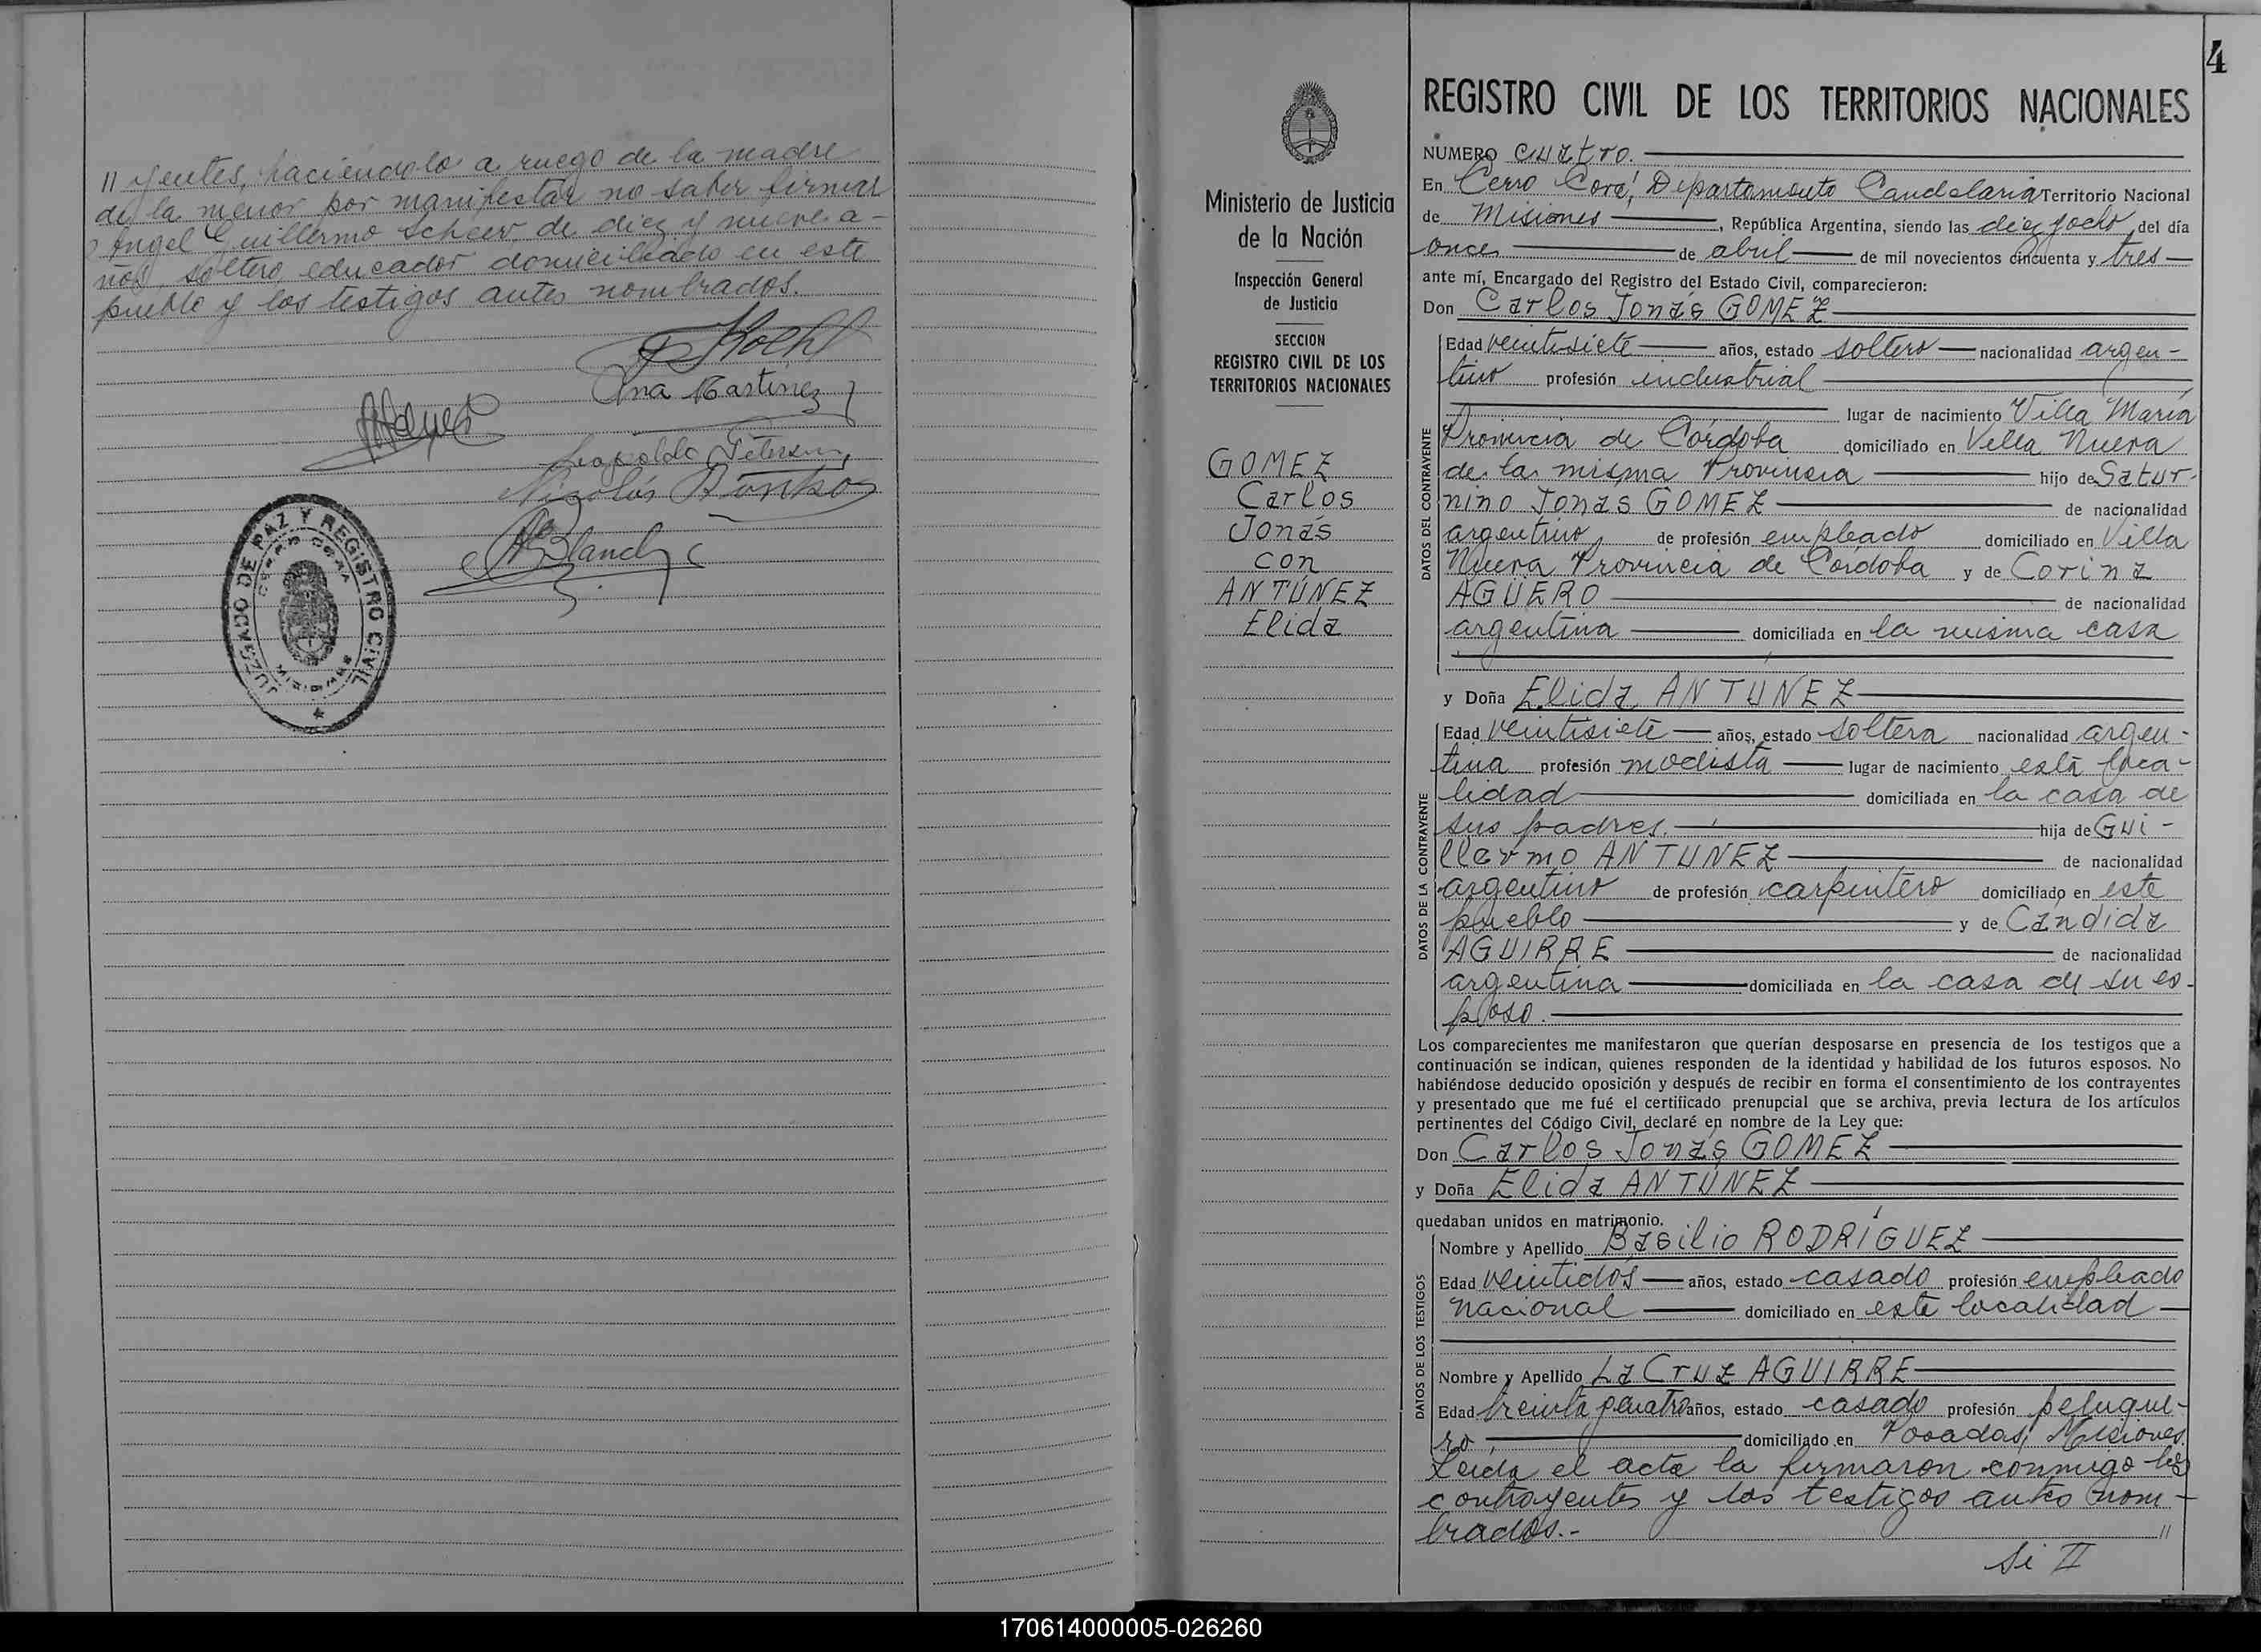 // yentes, haciéndolo a ruego de la madre
de la menor por manifestar no saber firmar
Angel Guillermo Scheer, de diez y nueve a-
ños, soltero, educador domiciliado en este
pueblo y los testigos antes nombrados.
Ana Martinez
Leopoldo Petersen
Nicolás
Blanch
JUZGADO DE PAZ Y REGISTRO CIVIL
CERRO CORA
MISIONES
4
Ministerio de Justicia
de la Nación
Inspección General
de Justicia
SECCION
REGISTRO CIVIL DE LOS
TERRITORIOS NACIONALES
GOMEZ
Carlos
Jonás
con
ANTÚNEZ
Elida
REGISTRO CIVIL DE LOS TERRITORIOS NACIONALES
NUMERO cuatro.
En Cerro Corá, Departamento Candelaria Territorio Nacional
de Misiones, República Argentina, siendo las diez y ocho, del día
once de abril de mil novecientos cincuenta y tres
ante mí, Encargado del Registro del Estado Civil, comparecieron:
Don Carlos Jonás GOMEZ
DATOS DEL CONTRAYENTE
Edad veintisiete años, estado soltero nacionalidad argen-
tino profesión industrial
lugar de nacimiento Villa María
Provincia de Córdoba domiciliado en Villa Nueva
de la misma Provincia hijo de Satur-
nino Jonas GOMEZ de nacionalidad
argentino, de profesión empleado domiciliado en Villa
Nueva Provincia de Córdoba y de Corina
AGÜERO de nacionalidad
argentina domiciliada en la misma casa
y Doña Elida ANTUNEZ
DATOS DE LA CONTRAYENTE
Edad veintisiete años, estado soltera nacionalidad argen-
tina profesión modista lugar de nacimiento esta loca-
lidad domiciliada en la casa de
sus padres. hija de Gui-
llermo ANTUNEZ de nacionalidad
argentino de profesión carpintero domiciliado en este
pueblo y de Cándida
AGUIRRE de nacionalidad
argentina domiciliada en la casa de su es-
poso.
Los comparecientes me manifestaron que querían desposarse en presencia de los testigos que a
continuación se indican, quienes responden de la identidad y habilidad de los futuros esposos. No
habiéndose deducido oposición y después de recibir en forma el consentimiento de los contrayentes
y presentado que me fué el certificado prenupcial que se archiva, previa lectura de los artículos
pertinentes del Código Civil, declaré en nombre de la Ley que:
Don Carlos Jonás GOMEZ
y Doña Elida ANTÚNEZ
quedaban unidos en matrimonio.
DATOS DE LOS TESTIGOS
Nombre y Apellido Basilio RODRÍGUEZ
Edad veintidos años, estado casado profesión empleado
nacional domiciliado en esta localidad
Nombre y Apellido La Cruz AGUIRRE
Edad treinta y cuatro años, estado casado profesión peluque-
ro, domiciliado en Posadas, Misiones.
Leida el acta la firmaron conmigo los
contrayentes y los testigos antes nom-
brados.- //
170614000005-026260